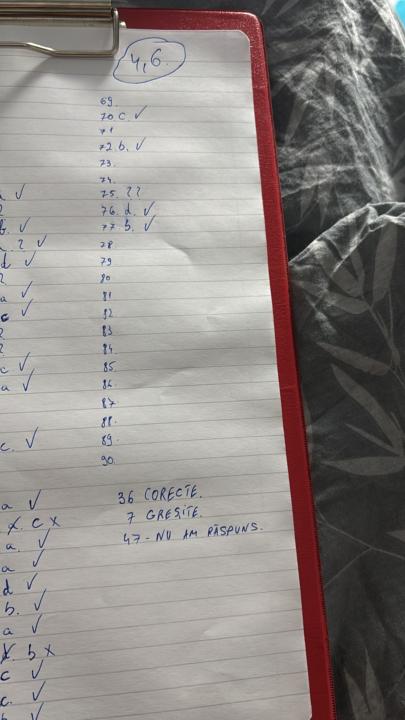 4,6.
69.
70. c. ✓
71
72. b. ✓
73.
74.
a ✓ 75. ??
? 76. d. ✓
b. ✓ 77. b. ✓
a. ? ✓ 78.
d ✓ 79
? 80
a ✓ 81
c ✓ 82
? 83
? 84.
c ✓ 85.
a ✓ 86.
87.
88.
c. ✓ 89.
90.
a ✓
c x
a. ✓
a ✓
d ✓
b. ✓
a ✓
b x
c ✓
c. ✓
36 CORECTE.
7 GREȘITE.
47 - NU AM RĂSPUNS.